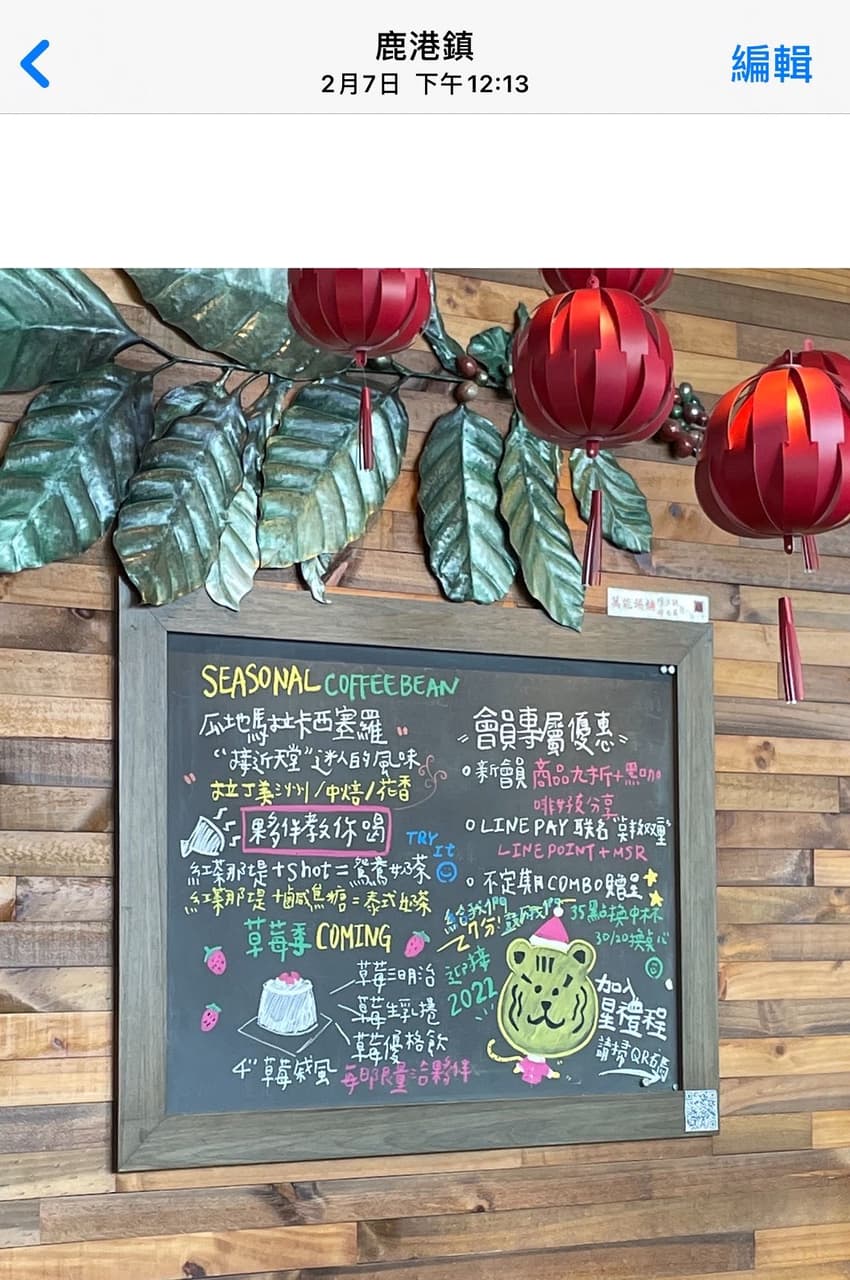 鹿港鎮
2月7日 下午12:13
編輯
SEASONAL COFFEE BEAN
瓜地馬拉卡西塞羅
"接近天堂"迷人的風味
拉丁美洲/中焙/花香
夥伴教你喝
TRY It
紅茶那堤+shot=鴛鴦奶茶
紅茶那堤+鹹焦糖=泰式奶茶
草莓季 COMING
草莓三明治
草莓生乳捲
草莓優格飲
4" 草莓戚風
每日限量洽夥伴
會員專屬優惠
新會員 商品九折+黑咖
啡好友分享
LINE PAY 聯名
LINE POINT + MSR
不定期COMBO贈星
35點換中杯
30/20換點心
給我們
迎接
2022
加入
星禮程
請掃QR碼